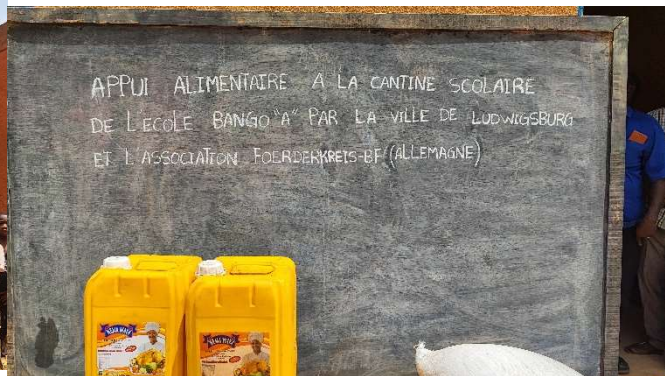 APPUI ALIMENTAIRE A LA CANTINE SCOLAIRE
DE L'ECOLE BANGO "A" PAR LA VILLE DE LUDWIGSBURG
ET L'ASSOCIATION FOERDERKREIS-BF (ALLEMAGNE)